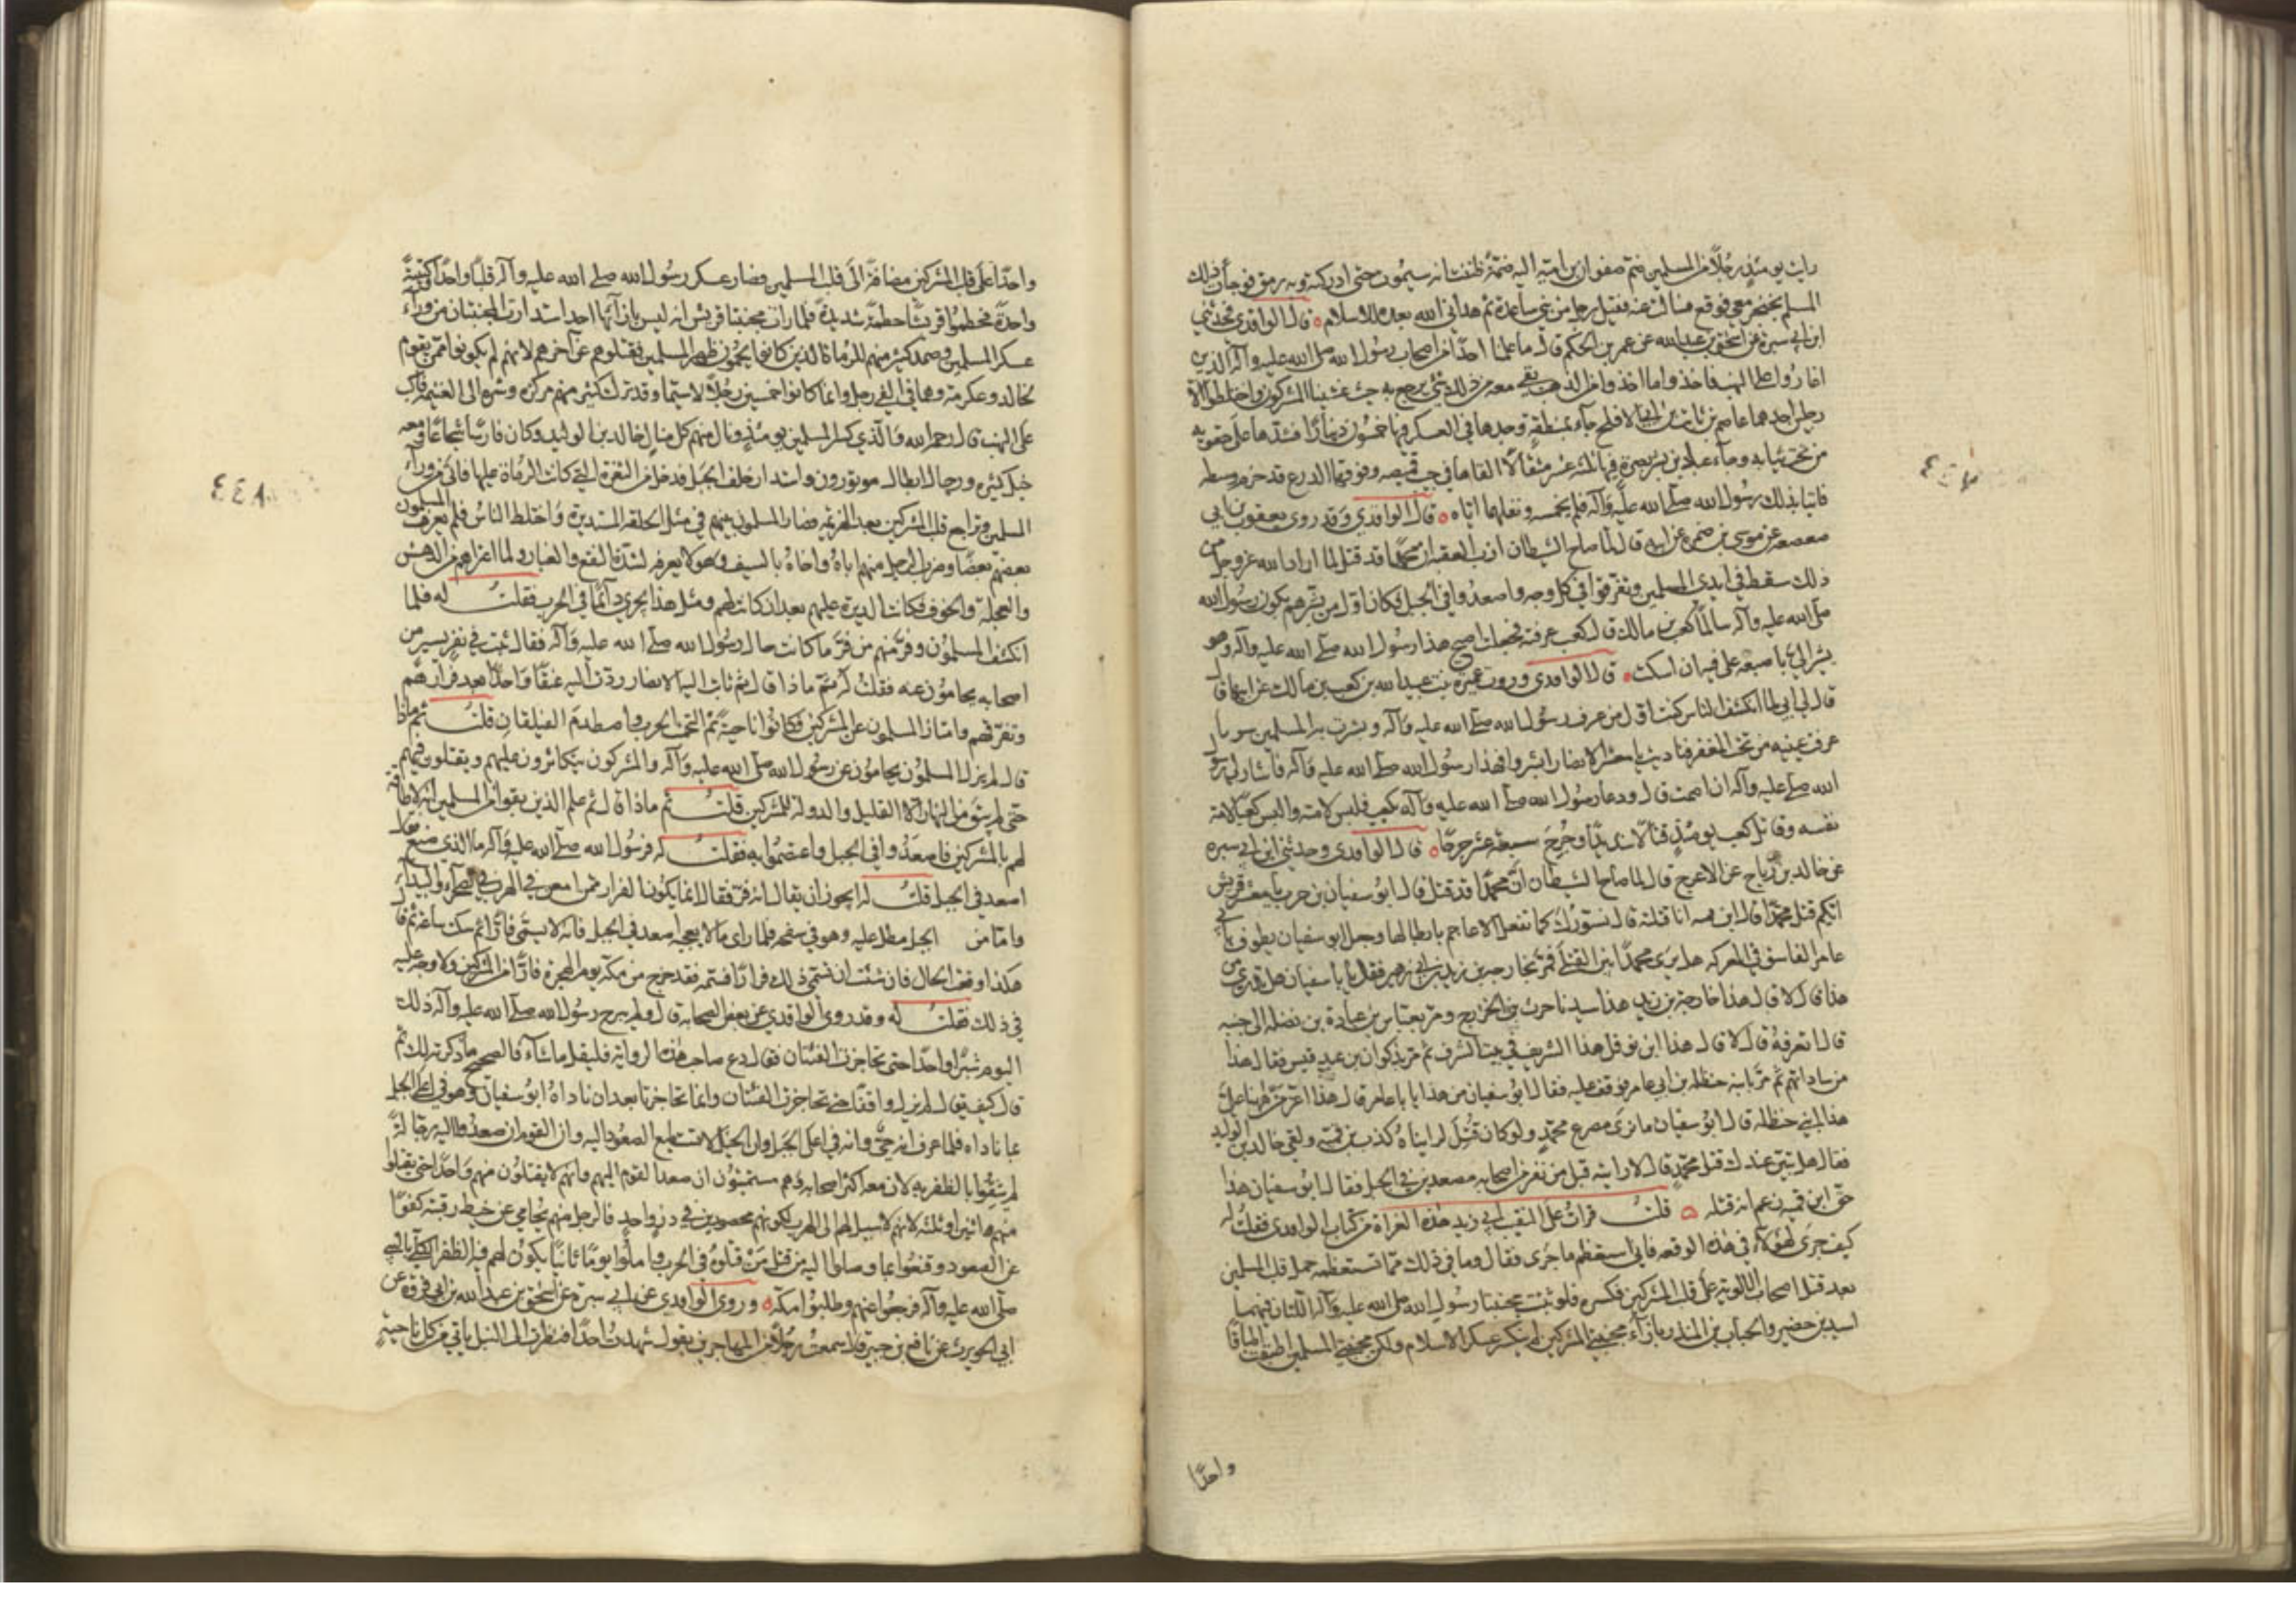 رايت يومئذ رجلا من المسلمين ضم صفوان بن امية اليه ضمة ظننت انه سيموت حتى ادركته وبه رمق فوجأت ذلك
المسلم بخنجر معي فوقع فسالت عنه فقيل رجل من بني ساعدة ثم هداني الله بعد للاسلام ٥ قال الواقدي فحدثني
ابن ابي سبرة عن اسحق بن عبد الله عن عمر بن الحكم قال ما علمنا احدا من اصحاب رسول الله صلى الله عليه وآله الذين
اغاروا على النهب فاخذوا ما اخذوا من الذهب بقي معه من ذلك شئ يرجع به حيث غشينا المشركون واختلطوا الا
رجلين احدهما عاصم بن ثابت بن ابي الاقلح جاء بمنطقة وجدها في العسكر فيها خمسون دينارا فشدها على حقويه
من تحت ثيابه وجاء عباد بن بشر بصرة فيها ثلثة عشر مثقالا القاها في جيب قميصه وفوقها الدرع قد حزم وسطه
فاتيا بذلك رسول الله صلى الله عليه وآله فلم يخمسه ونفلهما اياه ٥ قال الواقدي وقد روى يعقوب بن ابي
صعصعه عن موسى بن ضمره عن ابيه قال لما صاح الشيطان ازب العقبه ان محمدا قد قتل لما اراد الله عز وجل من
ذلك سقط في ايدي المسلمين وتفرقوا في كل وجه واصعدوا في الجبل فكان اول من بشرهم بكون رسول الله
صلى الله عليه وآله سالما كعب بن مالك قال كعب عرفته فجعلت اصيح هذا رسول الله صلى الله عليه وآله وهو
يشير الي باصبعه على فيه ان اسكت ٥ قال الواقدي وروت عميرة بنت عبيد الله بن كعب بن مالك عن ابيها قال
قال لي ابي لما انكشف الناس كنت اول من عرف رسول الله صلى الله عليه وآله وبشرت به المسلمين سويا
عرفت عينيه من تحت المغفر فناديت يا معشر الانصار ابشروا فهذا رسول الله صلى الله عليه وآله فاشار الي رسول
الله صلى عليه وآله ان اصمت قال ودعا رسول الله صلى الله عليه وآله بكعب فلبس لامته والبس كعبا لامة
نفسه وقاتل كعب يومئذ قتالا شديدا وجرح سبعة عشر جرحا ٥ قال الواقدي وحدثني ابن ابي سبره
عن خالد بن رباح عن الاعرج قال لما صاح الشيطان ان محمدا قد قتل قال ابو سفيان بن حرب يا معشر قريش
ايكم قتل محمدا قال ابن قميه انا قتلته قال نسورك كما تفعل الاعاجم بابطالها وجعل ابو سفيان يطوف بابي
عامر الفاسق في المعركه هل يرى محمدا بين القتلى فمر بخارجة بن زيد بن ابي زهير فقال يا ابا سفيان هل تدري من
هذا قال لا قال هذا خارجة بن زيد هذا سيد بلحرث بن الخزرج ومر بعباس بن عبادة بن نضلة الى جنبه
قال اتعرفه قال لا قال هذا ابن قوقل هذا الشريف في بيت الشرف ثم مر بذكوان بن عبد قيس فقال هذا
من ساداتهم ثم مر بابنه حنظله بن ابي عامر فوقف عليه فقال ابو سفيان من هذا يا ابا عامر قال هذا اعز من ههنا علي
هذا ابني حنظله قال ابو سفيان ما نرى مصرع محمد ولو كان قتل لرايناه كذب بن قميه ولقي خالد بن الوليد
فقال هل تبين عندك قتل محمد قال لا رايته قبل من نفر من اصحابه مصعدين في الجبل فقال ابو سفيان هذا
حق ابن قميه زعم انه قتله ٥ قلت قرات على النقيب ابي زيد هذه الغزاة من كتاب الواقدي فقلت له
كيف جرى لهؤلاء في هذه الوقعه فاني استعظم ما جرى فقال وما في ذلك مما تستعظمه حمل قلب المسلمين
بعد قتل اصحاب الالوية على قلب المشركين فكسره فلو ثبتت مجنبتا رسول الله صلى الله عليه وآله اللتان فيهما
اسيد بن حضير والحباب بن المنذر بازاء مجنبتي المشركين لم ينكسر عسكر الاسلام ولكن مجنبتي المسلمين اطبقت اطباقا
واحدا
واحدا على قلب المشركين مضافة الى قلب المسلمين فصار عسكر رسول الله صلى الله عليه وآله قلبا واحدا كتيبة
واحدة فحطموا قريشا حطمة شديدة فلما رات مجنبتا قريش انه ليس بازآئها احد استدارت المجنبتان من وراء
عسكر المسلمين وصمد كثير منهم للرماة الذين كانوا يحمون ظهر المسلمين فقتلوهم عن آخرهم لانهم لم يكونوا ممن يقوم
لخالد وعكرمة وهما في الفي رجل وانما كانوا خمسين رجلا لا سيما وقد ترك كثير منهم مركزه وشره الى الغنيمة فاكب
على النهب قال رحمه الله والذي كسر المسلمين يومئذ ونال منهم كل منال خالد بن الوليد وكان فارسا شجاعا ومعه
خيل كثيره ورجال ابطال موتورون واستدار خلف الجبل فدخل من الثغرة التي كانت الرماة عليها فاتى من وراء
المسلمين وتراجع قلب المشركين بعد الهزيمه فصار المسلمون بينهم في مثل الحلقه المستديرة واختلط الناس فلم يعرف المسلمون
بعضهم بعضا وضرب الرجل منهم اباه واخاه بالسيف وهو لا يعرفه لشدة النقع والغبار ولما اعتراهم من الدهش
والعجلة والخوف فكانت الدبرة عليهم بعد ان كانت لهم ومثل هذا يجري دائما في الحرب فقلت له فلما
انكشف المسلمون وفر منهم من فر ما كانت حال رسول الله صلى الله عليه وآله فقال ثبت في نفر يسير من
اصحابه يحامون عنه فقلت ثم ماذا قال ثم ثابت اليه الانصار وردت اليه عنقا واحدا بعد فرارهم
وتفرقهم وامتاز المسلمون عن المشركين فكانوا ناحية ثم التحمت الحرب واصطدم الفيلقان قلت ثم ماذا
قال لم يزل المسلمون يحامون عن رسول الله صلى الله عليه وآله والمشركون يتكاثرون عليهم ويقتلون فيهم
حتى لم يبق من النهار الا القليل والدولة للمشركين قلت ثم ماذا قال ثم علم الذين بقوا من المسلمين انه لا طاقة
لهم بالمشركين فاصعدوا في الجبل واعتصموا به فقلت له فرسول الله صلى الله عليه وآله ما الذي صنع فقال
اصعد في الجبل قلت له ايجوز ان يقال انه فر فقال انما يكون الفرار ممن امعن في الهرب في الصحراء والبيداء
واما من الجبل مطل عليه وهو في سفحه فلما راى ما لا يعجبه اصعد في الجبل فانه لا يسمى فارا ثم سكت ساعة ثم قال
هكذا وقعت الحال فان شئت ان تسمي ذلك فرارا فسمه فقد خرج من مكه يوم الهجرة فارا من المشركين ولا وصمة عليه
في ذلك فقلت له وقد روى الواقدي عن بعض الصحابة قال ولم يبرح رسول الله صلى الله عليه وآله ذلك
اليوم شبرا واحدا حتى تحاجزت الفئتان فقال دع صاحب هذه الرواية فليقل ما شاء فالصحيح ما ذكرته لك ثم
قال كيف يقال لم يزل واقفا حتى تحاجزت الفئتان وانما تحاجزتا بعد ان ناداه ابو سفيان وهو في اعلى الجبل
بما ناداه فلما عرف انه حي وانه في اعلى الجبل وان الخيل لا تستطيع الصعود اليه وان القوم ان صعدوا اليه رجالة
لم يثقوا بالظفر به لان معه اكثر اصحابه وهم مستميتون ان صعد القوم اليهم وانهم لا يقتلون منهم واحدا حتى يقتلوا
منهم اثنين او ثلثة لانهم لا سبيل لهم الى الهرب لكونهم محصورين في ذرو واحد فالرجل منهم يحامي عن خيط رقبته كفوا
عن الصعود وقنعوا بما وصلوا اليه من قتل من قتلوه في الحرب واملوا يوما ثانيا يكون لهم فيه الظفر الكلي بالنبي
صلى الله عليه وآله فرجعوا عنهم وطلبوا مكة ٥ وروى الواقدي عن ابي سبرة عن اسحق بن عبد الله بن ابي فروة عن
ابي الحويرث عن نافع بن جبير قال سمعت رجلا من المهاجرين يقول شهدت احدا فنظرت الى النبل ياتي من كل ناحية
٤٤٨